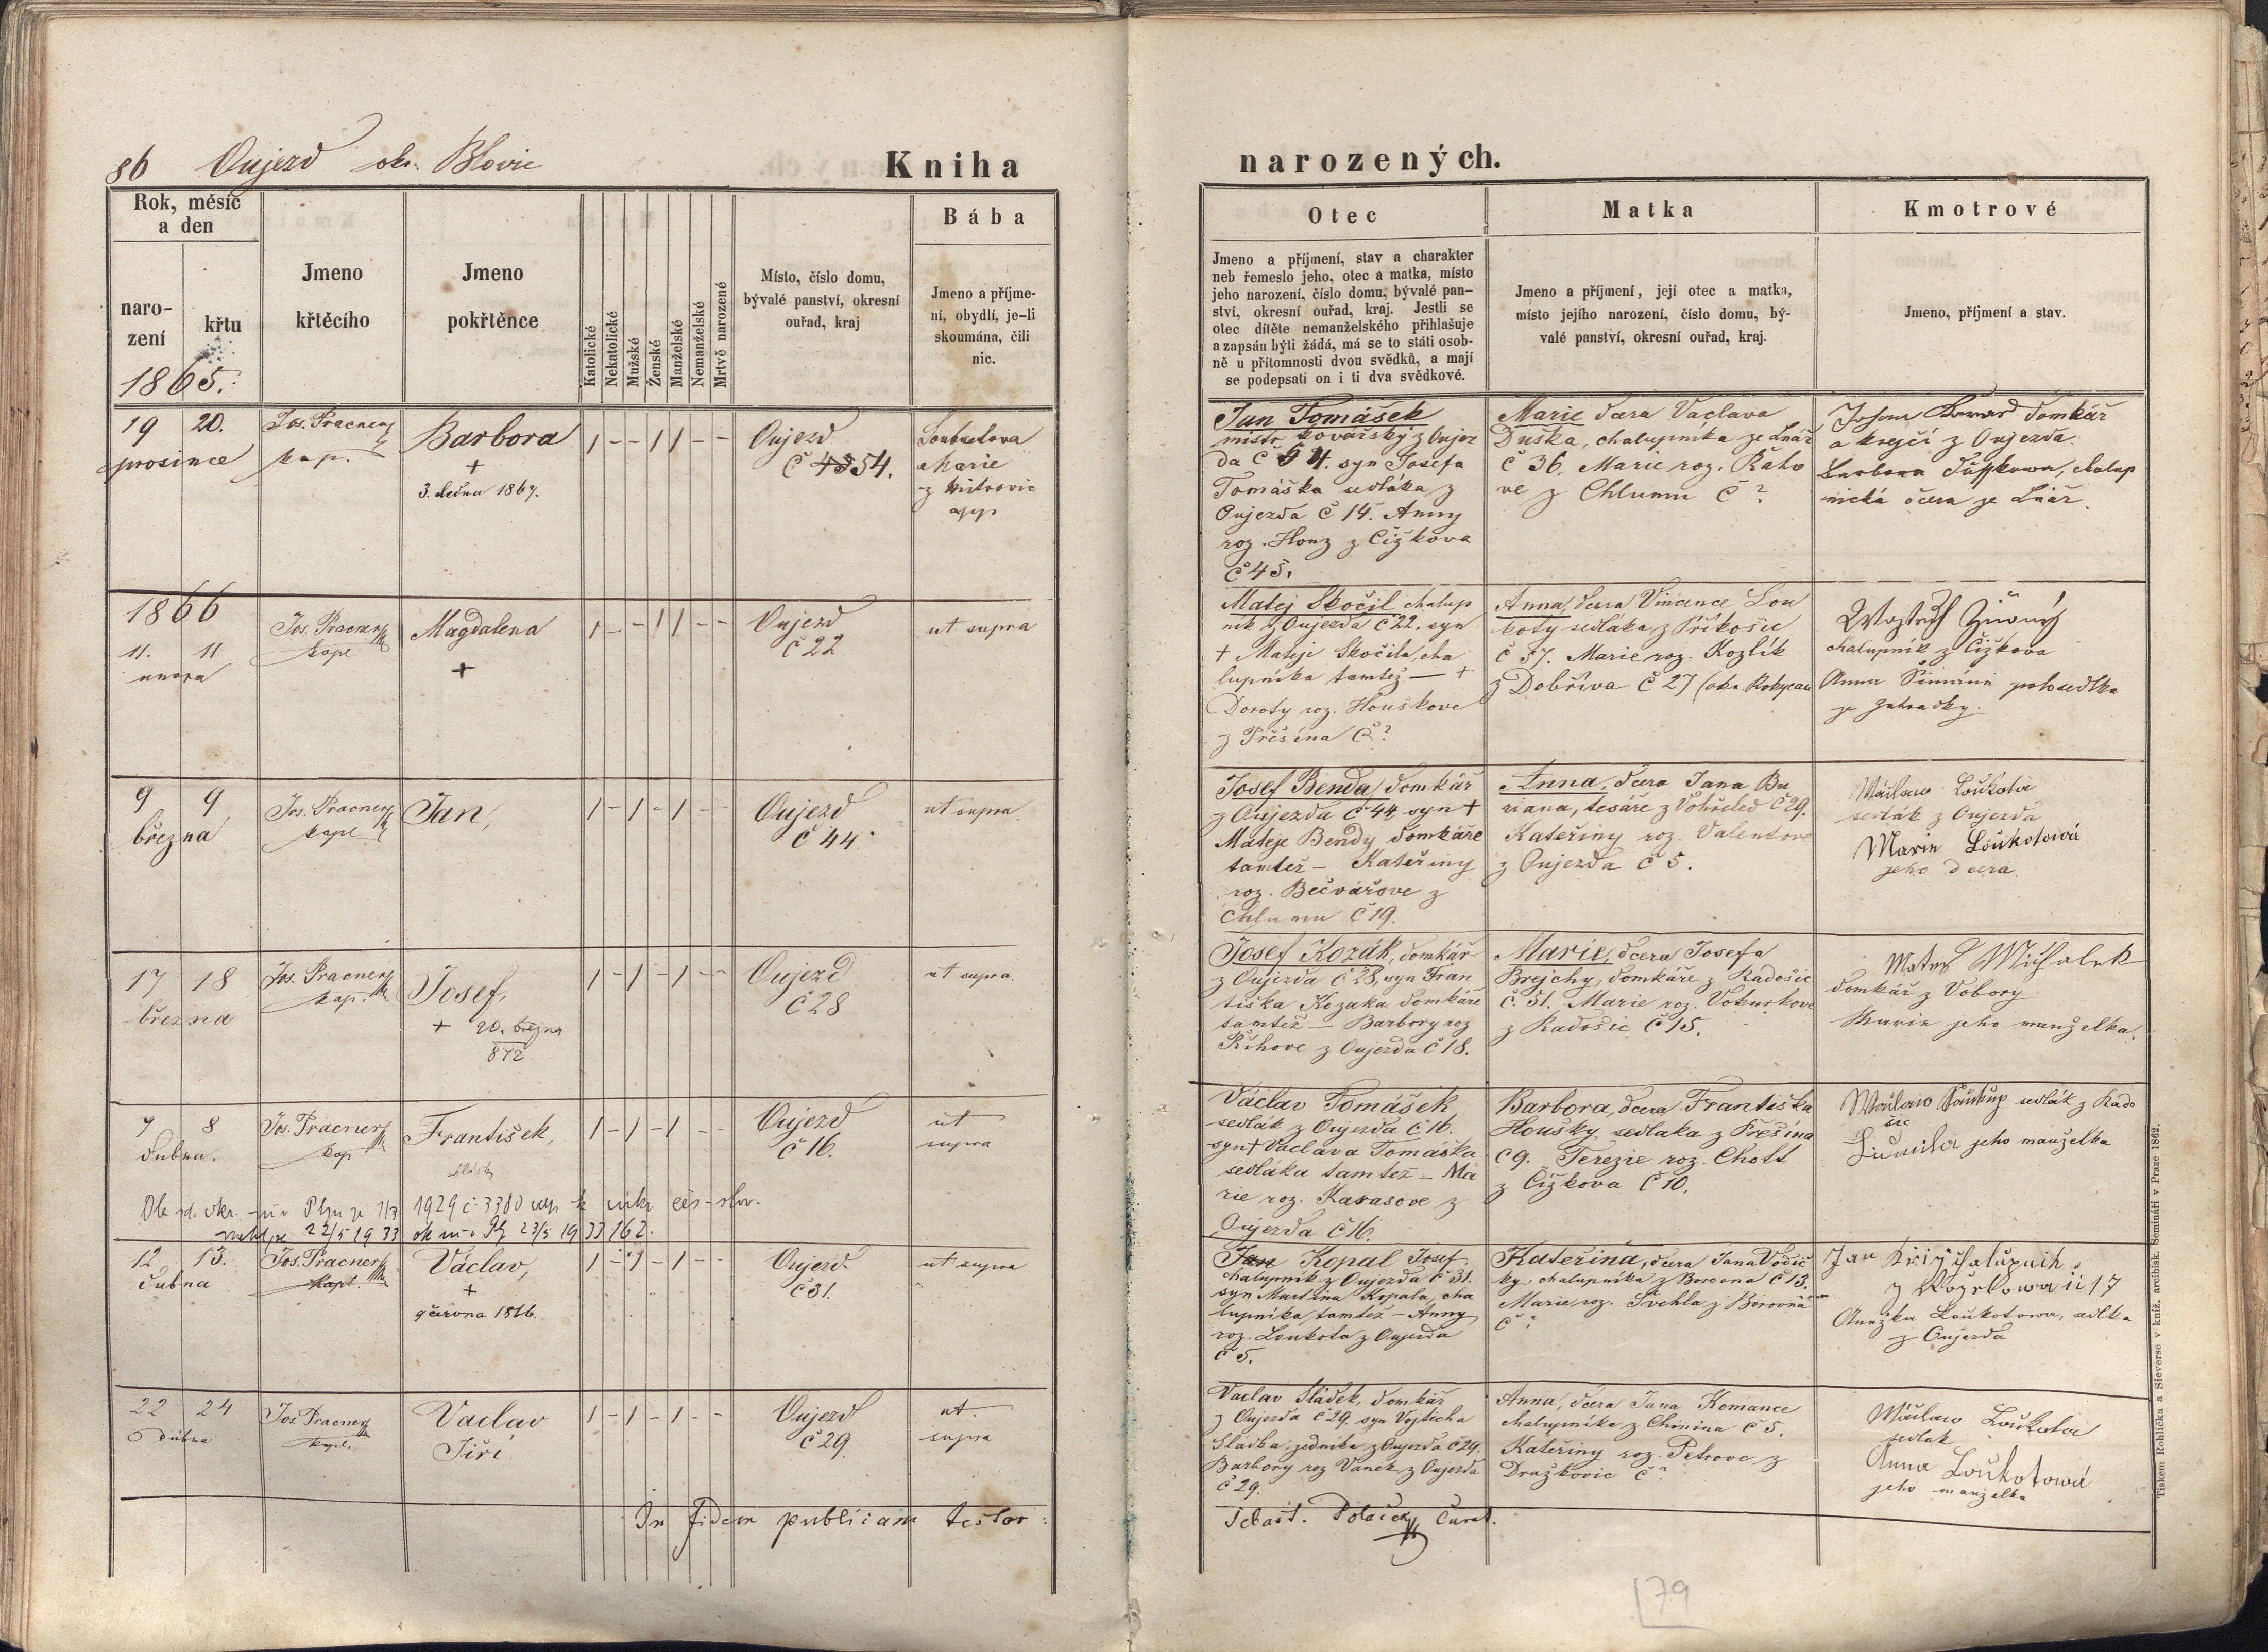 86 Oujezd okr. Blovic
Kniha
narozených.
Rok, měsíc
a den
naro-
zení
křtu
1865.
Jmeno
křtěcího
Jmeno
pokřtěnce
Katolické
Nekatolické
Mužské
Ženské
Manželské
Nemanželské
Mrtvě narozené
Místo, číslo domu,
bývalé panství, okresní
ouřad, kraj
Bába
Jmeno a příjme-
ní, obydlí, je-li
skoumána, čili
nic.
Otec
Jmeno a příjmení, stav a charakter
neb řemeslo jeho, otec a matka, místo
jeho narození, číslo domu, bývalé pan-
ství, okresní ouřad, kraj. Jestli se
otec dítěte nemanželského přihlašuje
a zapsán býti žádá, má se to státi osob-
ně u přítomnosti dvou svědků, a mají
se podepsati on i ti dva svědkové.
Matka
Jmeno a příjmení, její otec a matka,
místo jejího narození, číslo domu, bý-
valé panství, okresní ouřad, kraj.
Kmotrové
Jmeno, příjmení a stav.
19 20.
prosince
Jos. Pracner
kap.
Barbora
+
3. ledna 1867.
1 - - 1 1 - -
Oujezd
č 54.
Marie
z Mitrovic
app
Jan Tomášek
mistr kovářský z Oujez
da č 54. syn Josefa
Tomáška sedláka z
Oujezda č 14. Anny
roz. Honz z Čížkova
č 45.
Marie dcera Vaclava
Duška, chalupníka ze Lnář
č 36. Marie roz.
ve z Chlumu č ?
domkář
a krejčí z Oujezda.
Barbora chalup
nická dcera ze Lnář.
1866
11. 11
unora
Jos. Pracner
kapl
Magdalena
+
1 - - 1 1 - -
Oujezd
č 22
ut supra
Matej Skočil chalup
ník z Oujezda č 22. syn
+ Mateje Skočila, cha
lupníka tamtež — +
Doroty roz. Houškove
z Přešína č ?
Anna, dcera Vincence Lou
koty sedláka z Příkosic
č 37. Marie roz. Kozlík
z Dobříva č 27 (okr. Rokycan
Wojtěch
chalupník z Čížkova
Anna polosedlka
ze
9 9
března
Jos. Pracner
kapl
Jan,
1 - 1 - 1 - -
Oujezd
č 44.
ut supra.
Josef Benda, domkář
z Oujezda č 44 syn +
Mateje Bendy domkáře
tamtež — Kateřiny
roz. Bečvářove z
Chlumu č 19.
Anna, dcera Jana Bu
riana, tesaře z Vohřeled č 29.
Kateřiny roz. Valentove
z Oujezda č 5.
Wáclaw Loukota
sedlák z Oujezda
Marie Loukotowá
jeho dcera.
17 18
března
Jos. Pracner
kap.
Josef,
+ 20. března
872
1 - 1 - 1 - -
Oujezd
č 28
ut supra.
Josef Kozák, domkář
z Oujezda č 28, syn Fran
tiška Kozaka domkáře
tamtež — Barbory roz
Říhove z Oujezda č 18.
Marie, dcera Josefa
Brejchy, domkáře z Radošic
č. 51. Marie roz. Vokurkove
z Radošic č 15.
Matěj Michalek
domkář z Vobory
Marie jeho manželka.
7 8
dubna.
Jos. Pracner
kap
František,
1 - 1 - 1 - -
Oujezd
č 16.
ut
supra
Václav Tomášek
sedlák z Oujezda č 16.
syn + Václava Tomáška
sedlaka tamtež — Ma
rie roz. Karasove z
Oujezda č 16.
Barbora, dcera Františka
Houšky, sedlaka z Přešína
č 9. Terezie roz. Chott
z Čížkova č 10.
Wáclaw Soukup sedlák z Rado
šic
Ludmila jeho manželka
Dle 1929 č. 3380 čes-slov.
22/5 1933 23/5 1933
12 13.
dubna
Jos. Pracner
kapl.
Václav,
+
9 června 1866.
1 - 1 - 1 - -
Oujezd
č 31.
ut supra
Jan Kopal Josef
chalupník z Oujezda č 31.
syn Martina Kopala, cha
lupníka tamtež — Anny
roz. Loukota z Oujezda
č 5.
Kateřina, dcera Jana Vodič
ky, chalupníka z Borovna č 13.
Marie roz. Švehla z Borovna
č ?
Jan Kříž chalupník
17
Anežka Loukotowa, sedlka
z Oujezda
22 24
dubna
Jos. Pracner
kapl.
Vaclav
Jiří.
1 - 1 - 1 - -
Oujezd
č 29.
ut.
supra
Vaclav Sládek, domkář
z Oujezda č 29, syn Vojtěcha
Sládka zedníka z Oujezda č 29.
Barbory roz Vaněk z Oujezda
č 29.
Anna, dcera Jana Komance
chalupníka z Chinina č 5.
Kateřiny roz. Petrove z
Dražkovic č ?
Wáclaw Loukota
sedlák
Anna Loukotowá
jeho manželka
In fidem publicam testor:
Šebast. Polaček Curat.
79
Tiskem Rohlíčka a Sieverse v kníž. arcibisk. Semináři v Praze 1862.